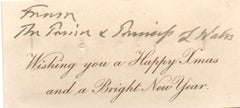 From
The Prince & Princess of Wales
Wishing you a Happy Xmas
and a Bright New Year.